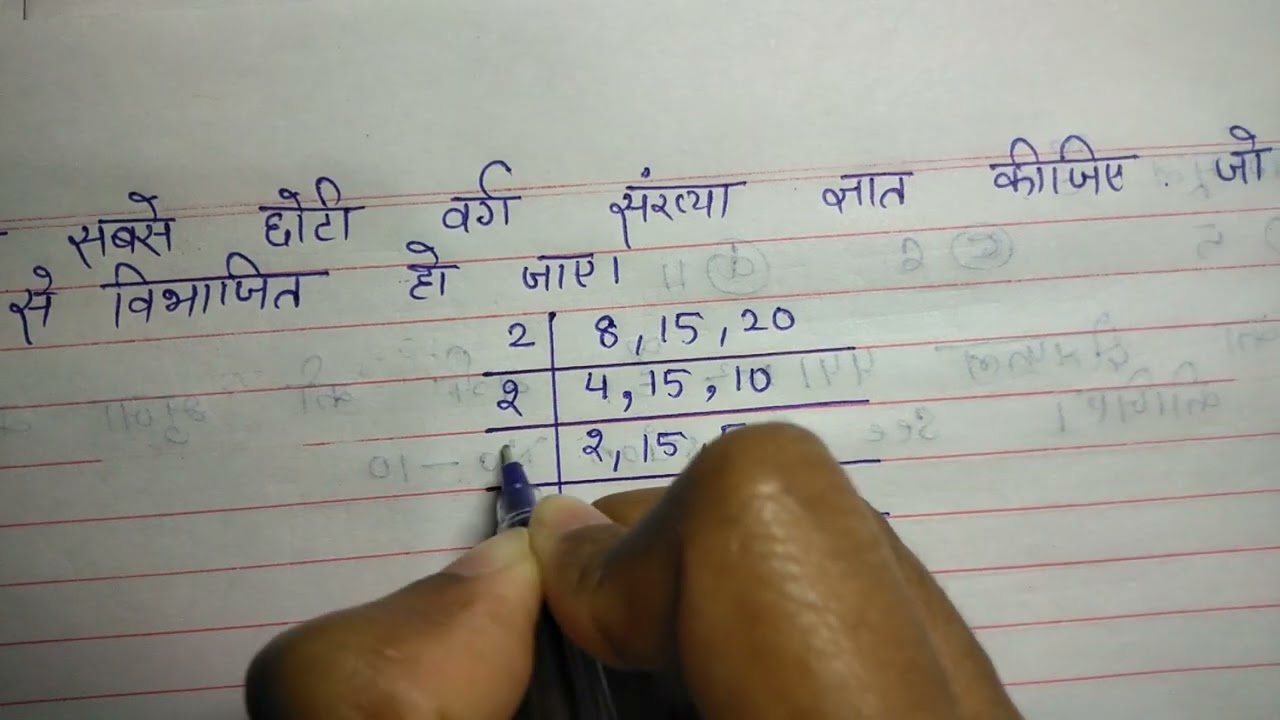 सबसे छोटी वर्ग संख्या ज्ञात कीजिए जो
से विभाजित हो जाए।
2 8, 15, 20
2 4, 15, 10
2, 15,